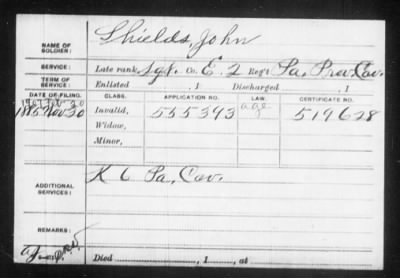 NAME OF SOLDIER: Shields, John
SERVICE: Late rank, Sgt. Co. E. 2 Reg't Pa. Prov. Cav.
TERM OF SERVICE: Enlisted , 1 Discharged , 1
DATE OF FILING. CLASS. APPLICATION NO. LAW. CERTIFICATE NO.
1885 Nov 20 Invalid, 555393 519628
Widow,
Minor,
ADDITIONAL SERVICES: K 6 Pa. Cav.
REMARKS:
Died , 1 , at